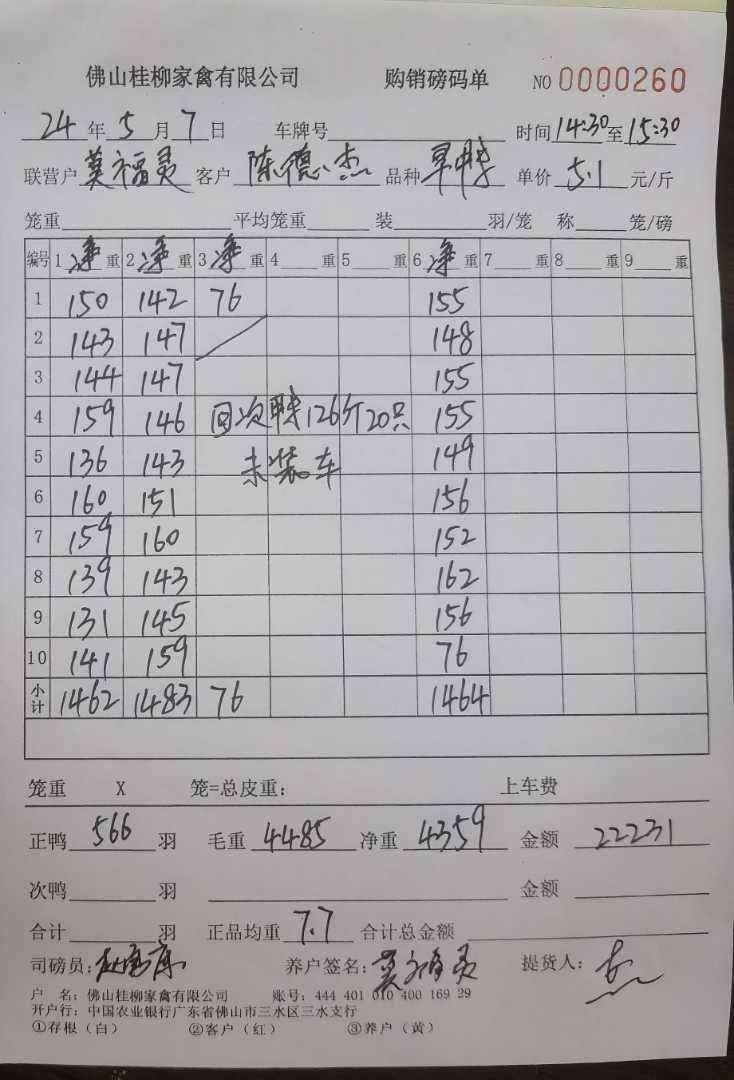 佛山桂柳家禽有限公司 购销磅码单 NO 0000260
24年5月7日 车牌号 时间14:30至15:30
联营户 莫福灵 客户 陈德杰 品种 单价 5.1 元/斤
笼重 平均笼重 装 羽/笼 称 笼/磅
编号 1净重 2净重 3净重 4重 5重 6净重 7重 8重 9重
1 150 142 76 155
2 143 147 148
3 144 147 155
4 159 146 回次鸭126斤20只 155
5 136 143 未装车 149
6 160 151 156
7 159 160 152
8 139 143 162
9 131 145 156
10 141 159 76
小计 1462 1483 76 1464
笼重 X 笼=总皮重: 上车费
正鸭 566 羽 毛重 4485 净重 4359 金额 22231
次鸭 羽 金额
合计 羽 正品均重 7.7 合计总金额
司磅员: 养户签名: 莫福灵 提货人:
户 名: 佛山桂柳家禽有限公司 账号: 444 401 010 400 169 29
开户行: 中国农业银行广东省佛山市三水区三水支行
①存根(白) ②客户(红) ③养户(黄)